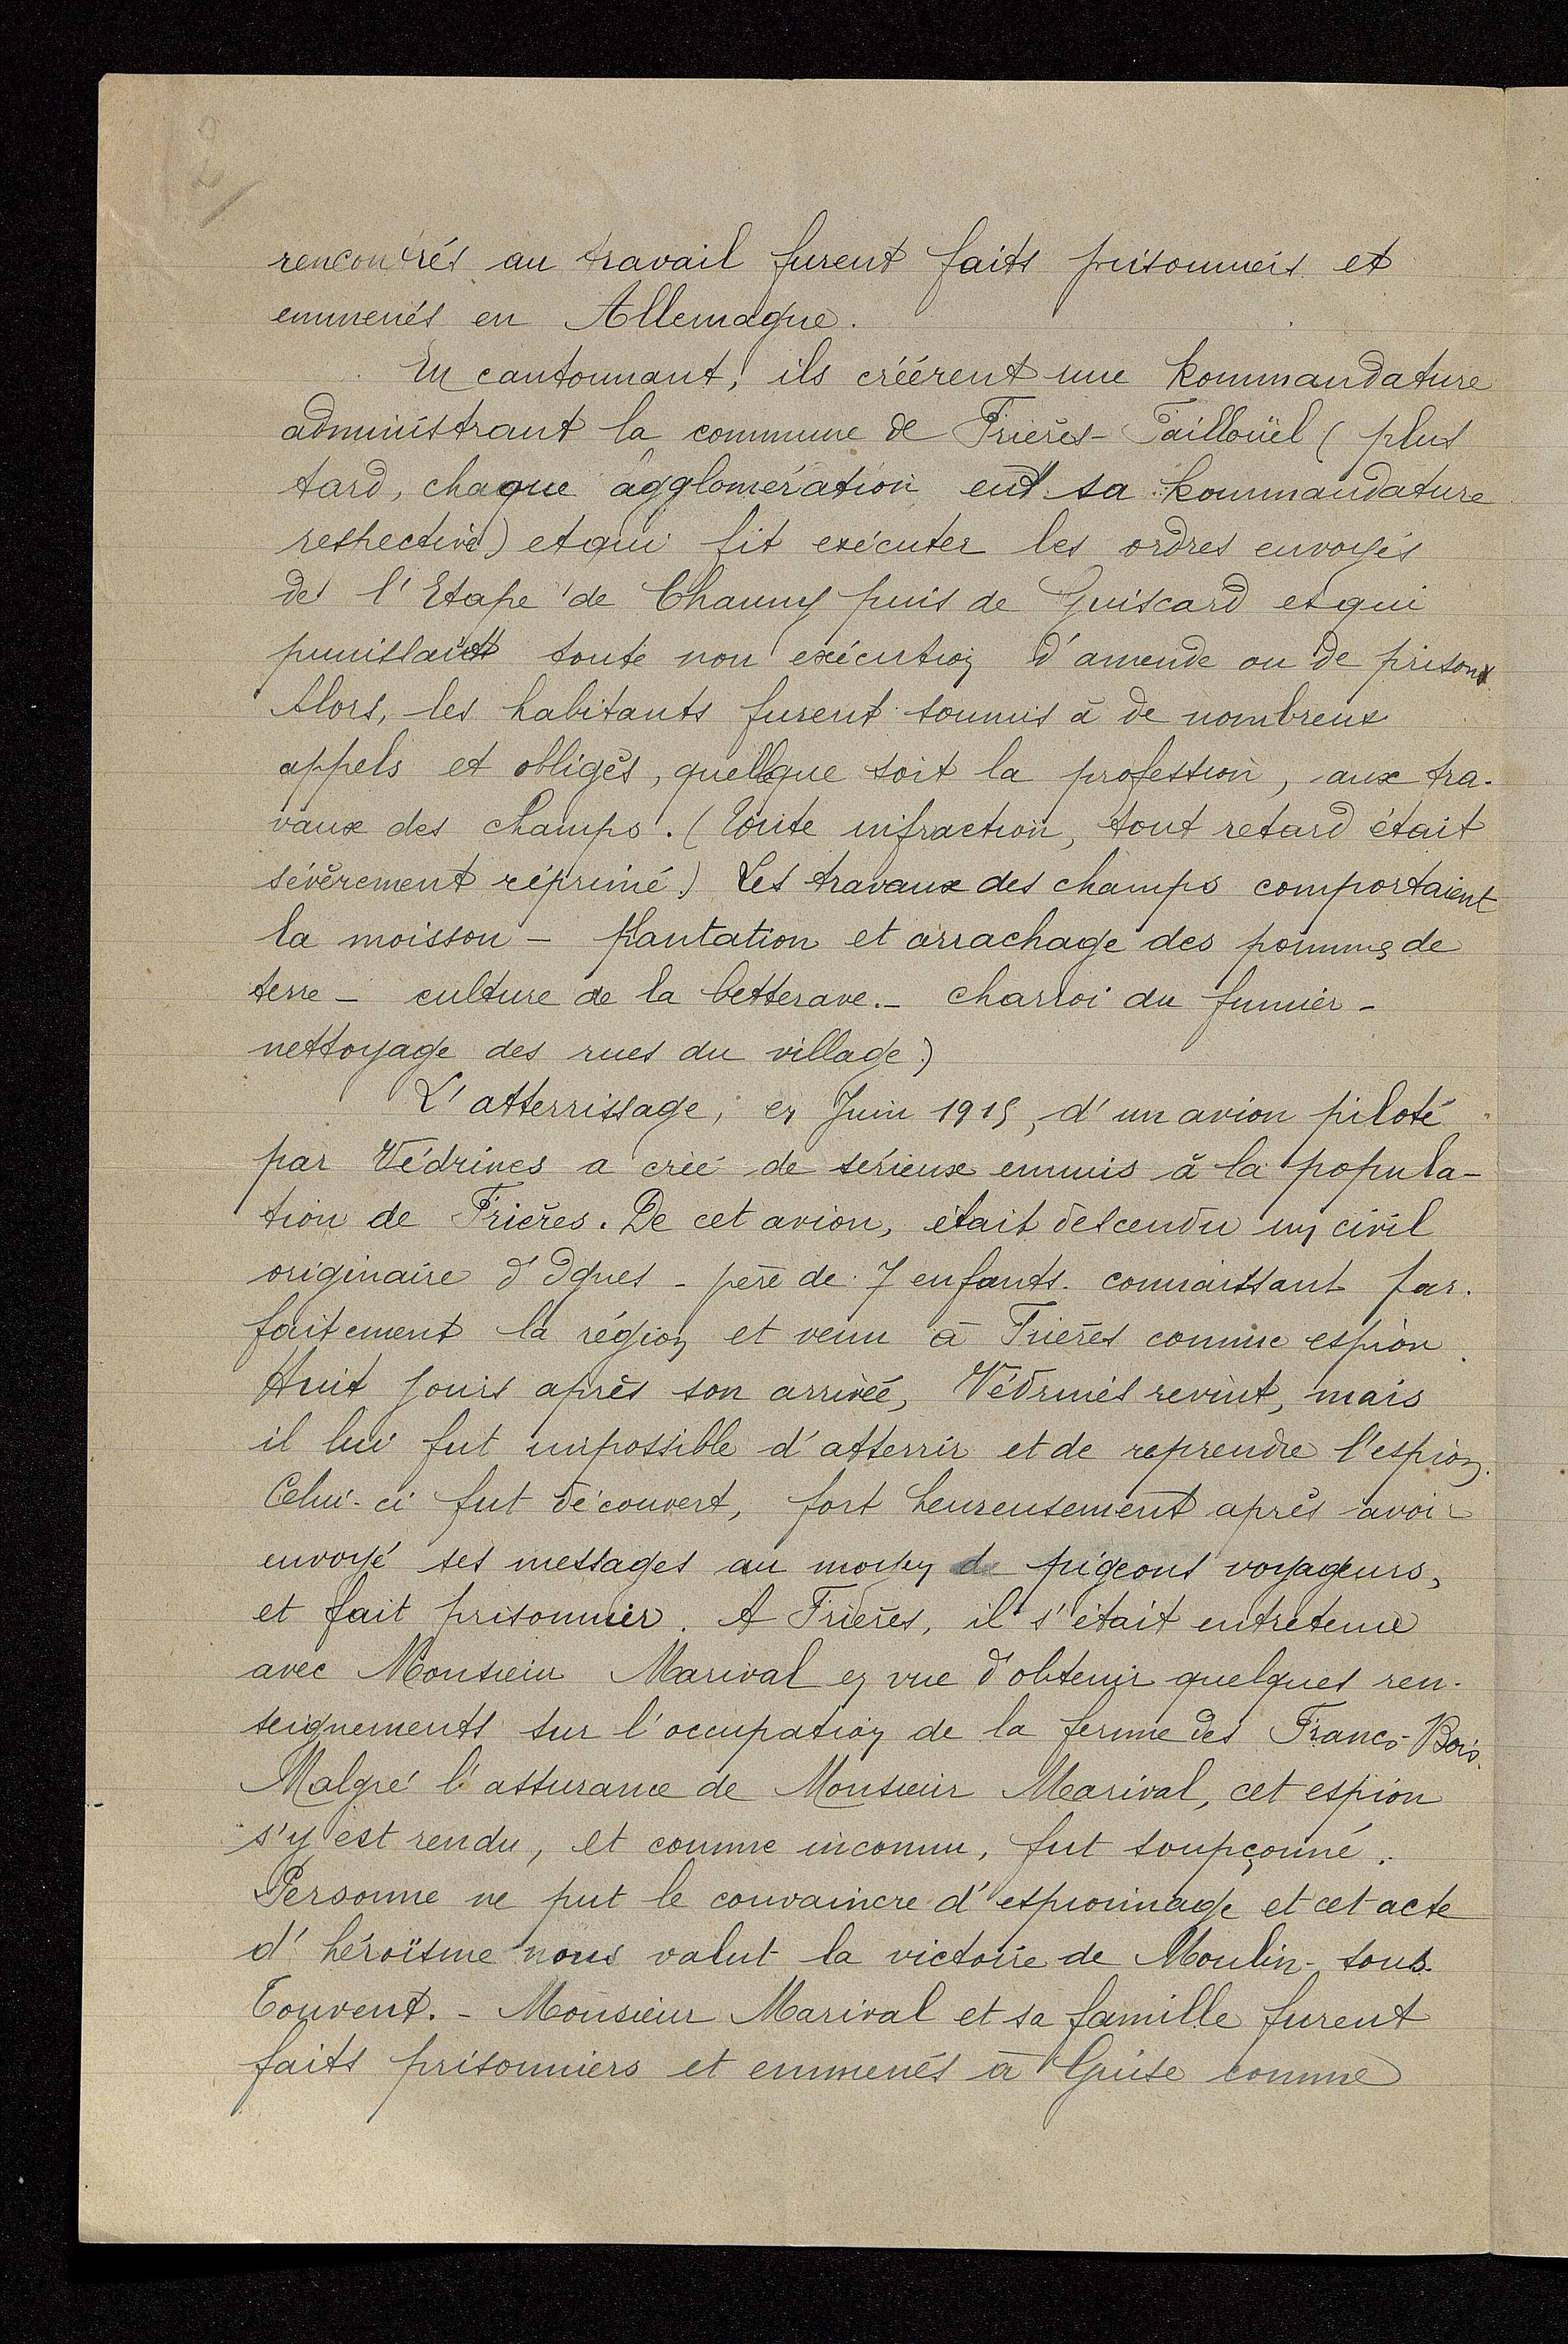 2
rencontrés au travail furent faits prisonniers et
emmenés en Allemagne.
En cantonnant, ils créèrent une kommandature
administrant la commune de Frières-Faillouël (plus
tard, chaque agglomération eut sa kommandature
respective) et qui fit exécuter les ordres envoyés
de l'Etape de Chauny puis de Guiscard et qui
punissait toute non exécution d'amende ou de prison
Alors, les habitants furent soumis à de nombreux
appels et obligés, quelque soit la profession, aux tra-
vaux des champs. (Toute infraction, tout retard était
sévèrement réprimé.) Les travaux des champs comportaient
la moisson - plantation et arrachage des pommes de
terre - culture de la betterave. - charroi du fumier -
nettoyage des rues du village.)
L'atterrissage, en Juin 1915, d'un avion piloté
par Védrines a créé de sérieux ennuis à la popula-
tion de Frières. De cet avion, était descendu un civil
originaire d'Ognes - père de 7 enfants. connaissant par-
faitement la région et venu à Frières comme espion.
Huit jours après son arrivée, Védrines revint, mais
il lui fut impossible d'atterrir et de reprendre l'espion.
Celui-ci fut découvert, fort heureusement après avoir
envoyé ses messages au moyen de pigeons voyageurs,
et fait prisonnier. A Frières, il s'était entretenu
avec Monsieur Marival en vue d'obtenir quelques ren-
seignements sur l'occupation de la ferme des Francs-Bois.
Malgré l'assurance de Monsieur Marival, cet espion
s'y est rendu, et comme inconnu, fut soupçonné.
Personne ne put le convaincre d'espionnage et cet acte
d'héroïsme nous valut la victoire de Moulin-sous-
Touvent. - Monsieur Marival et sa famille furent
faits prisonniers et emmenés à Guise comme